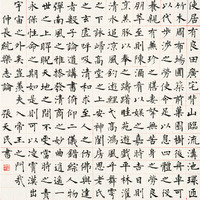 使居有良田廣宅背山臨流溝池環匝
竹木周布場圃築前果園樹後舟車足
以代步涉之艱使令足以息四體之役
養親有兼珍之膳妻孥無苦身之勞良
朋萃止則陳酒肴以娛之嘉時吉日則
烹羔豚以奉之躊躇畦苑遊戲平林濯
清水追涼風釣游鯉弋高鴻諷於舞雩
之下詠歸高堂之上安神閨房思老氏
之玄虛呼吸精和求至人之彷彿與達
者數子論道講書俯仰二儀錯綜人物
彈南風之雅操發清商之妙曲逍遙一
世之上睥睨天地之間不受當時之責
永保性命之期如是則可以凌霄漢出
宇宙之外矣豈羨夫入帝王之門哉
仲長統樂志論 張天民書